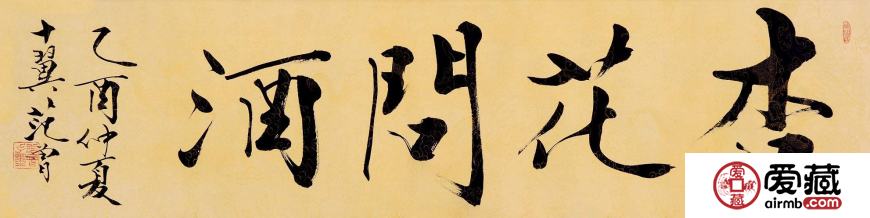 杏花問酒
乙酉仲夏
十翼范曾
爱藏
airmb.com